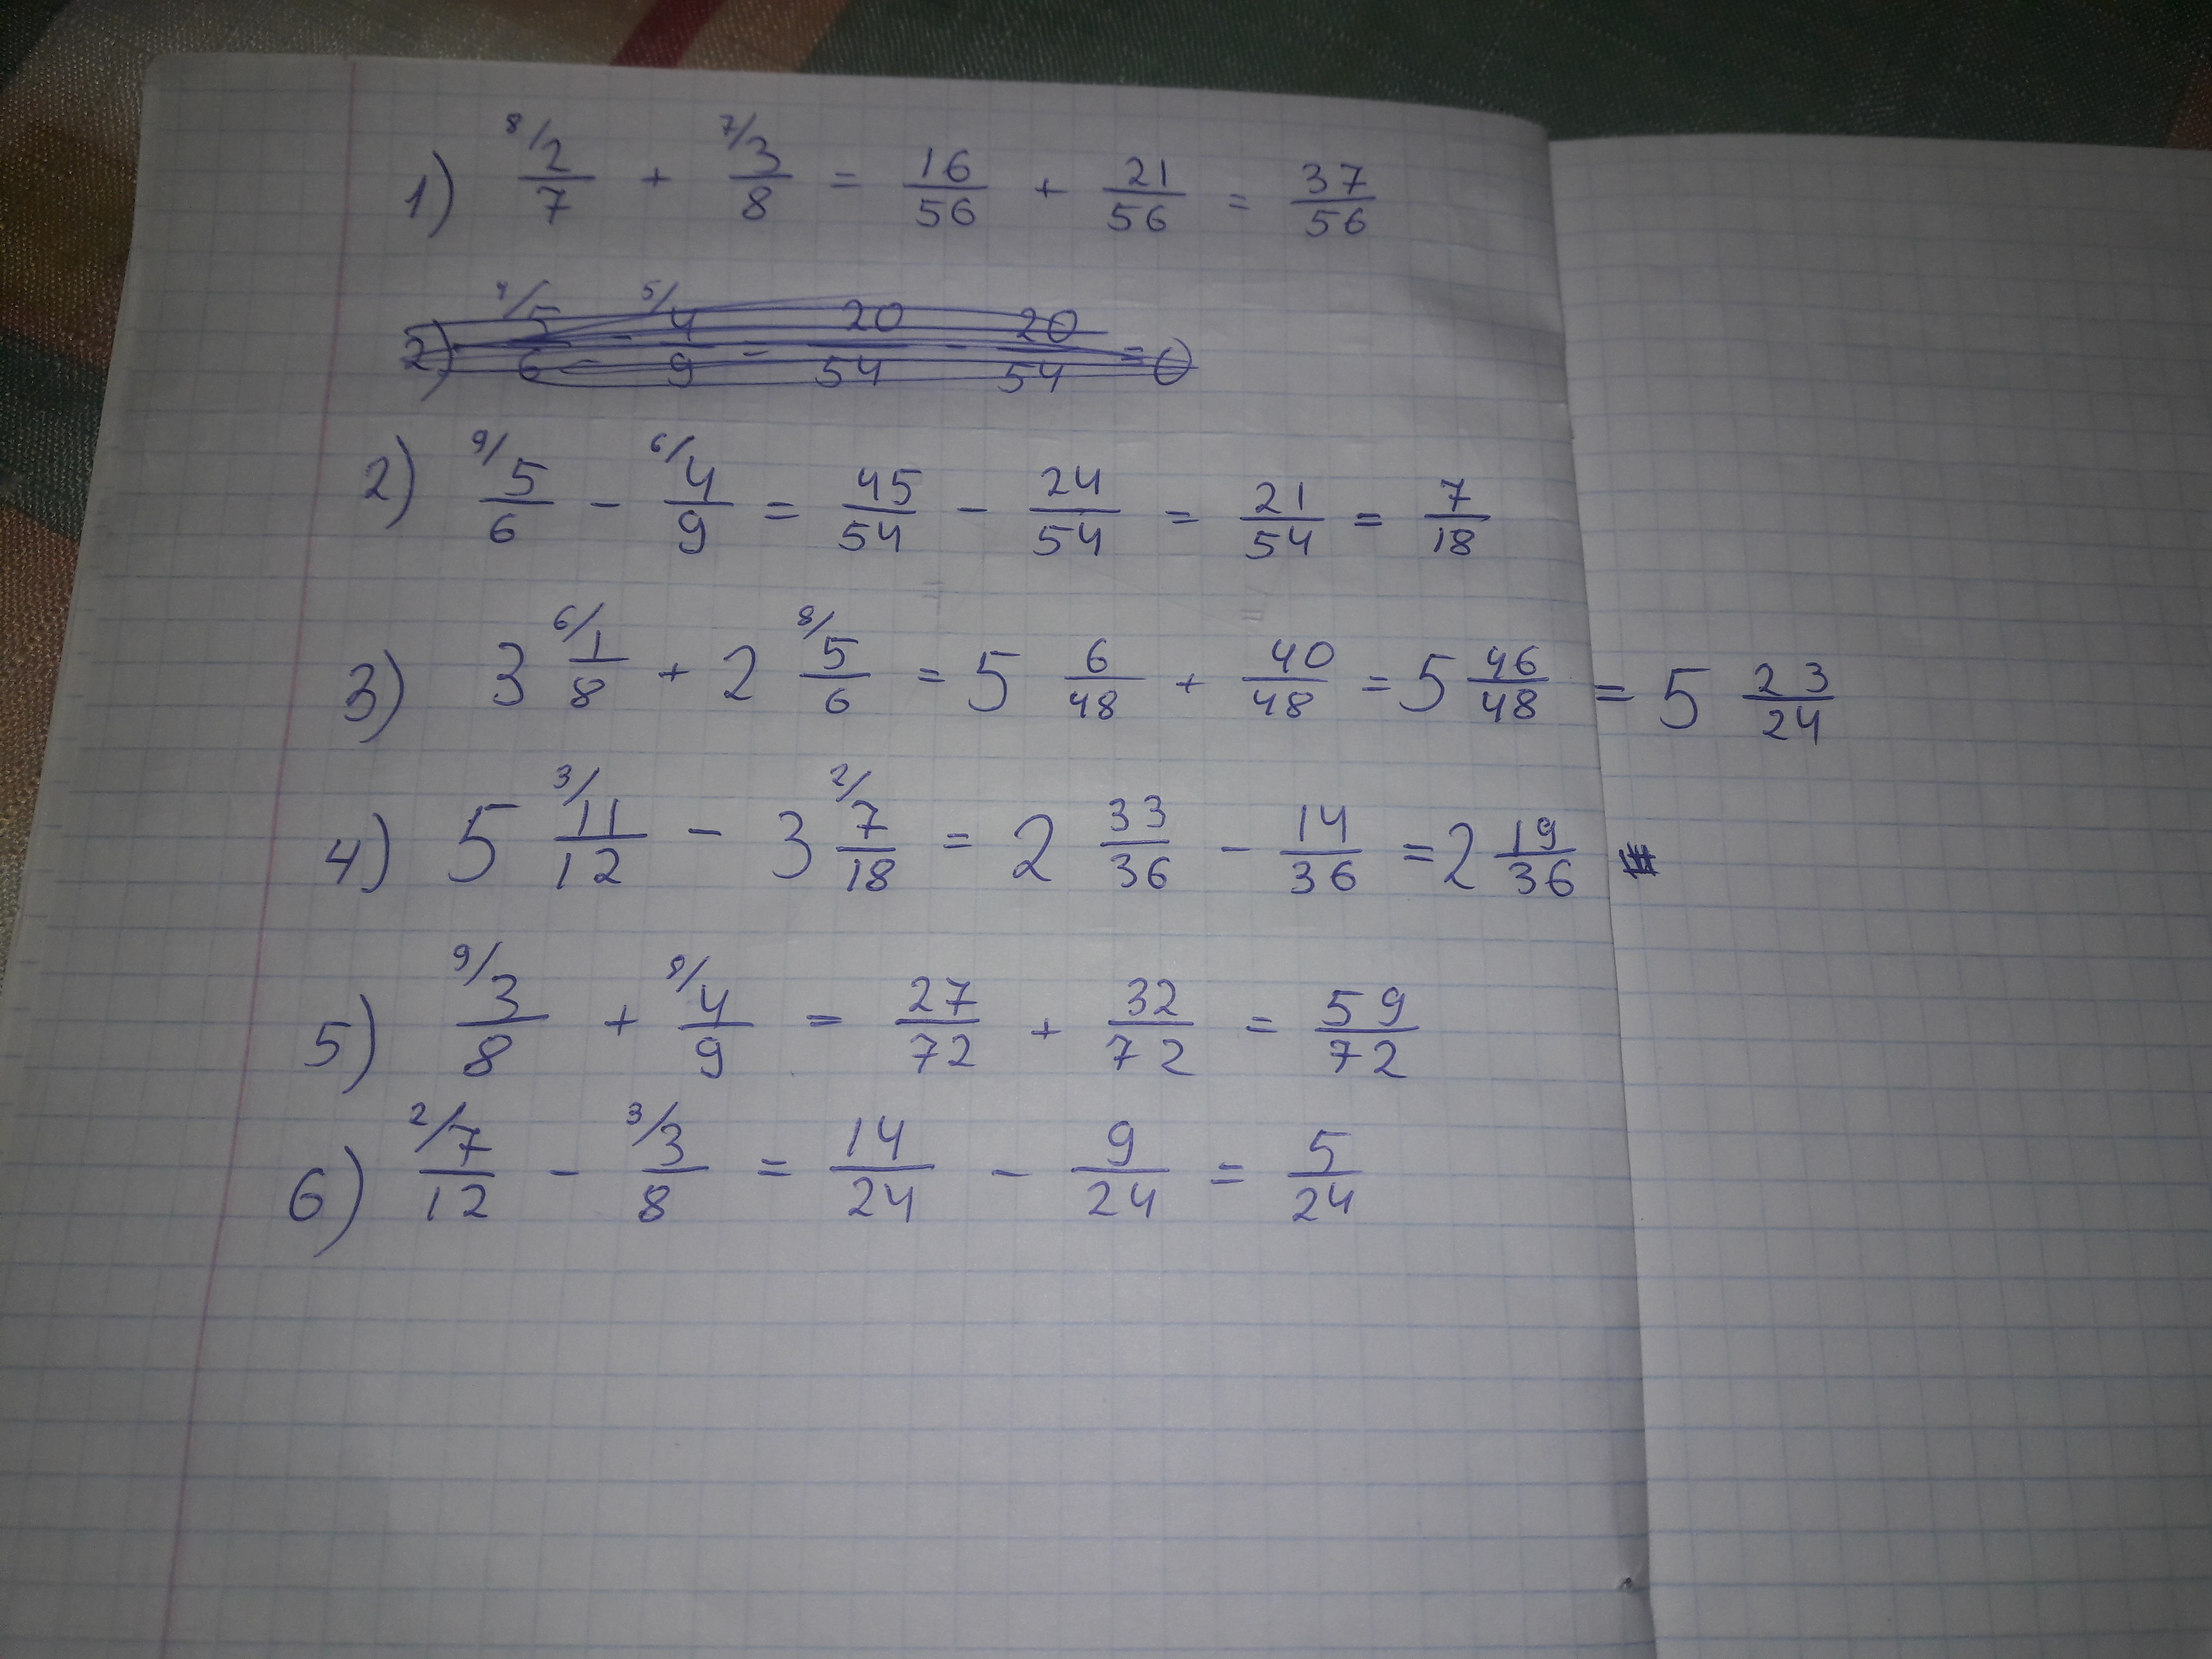 1) 8/ 2/7 + 7/ 3/8 = 16/56 + 21/56 = 37/56
2) 4/ 5/6 - 5/ 4/9 = 20/54 - 20/54 = 0
2) 9/ 5/6 - 6/ 4/9 = 45/54 - 24/54 = 21/54 = 7/18
3) 3 6/ 1/8 + 2 8/ 5/6 = 5 6/48 + 40/48 = 5 46/48 = 5 23/24
4) 5 3/ 11/12 - 3 2/ 7/18 = 2 33/36 - 14/36 = 2 19/36
5) 9/ 3/8 + 8/ 4/9 = 27/72 + 32/72 = 59/72
6) 2/ 7/12 - 3/ 3/8 = 14/24 - 9/24 = 5/24